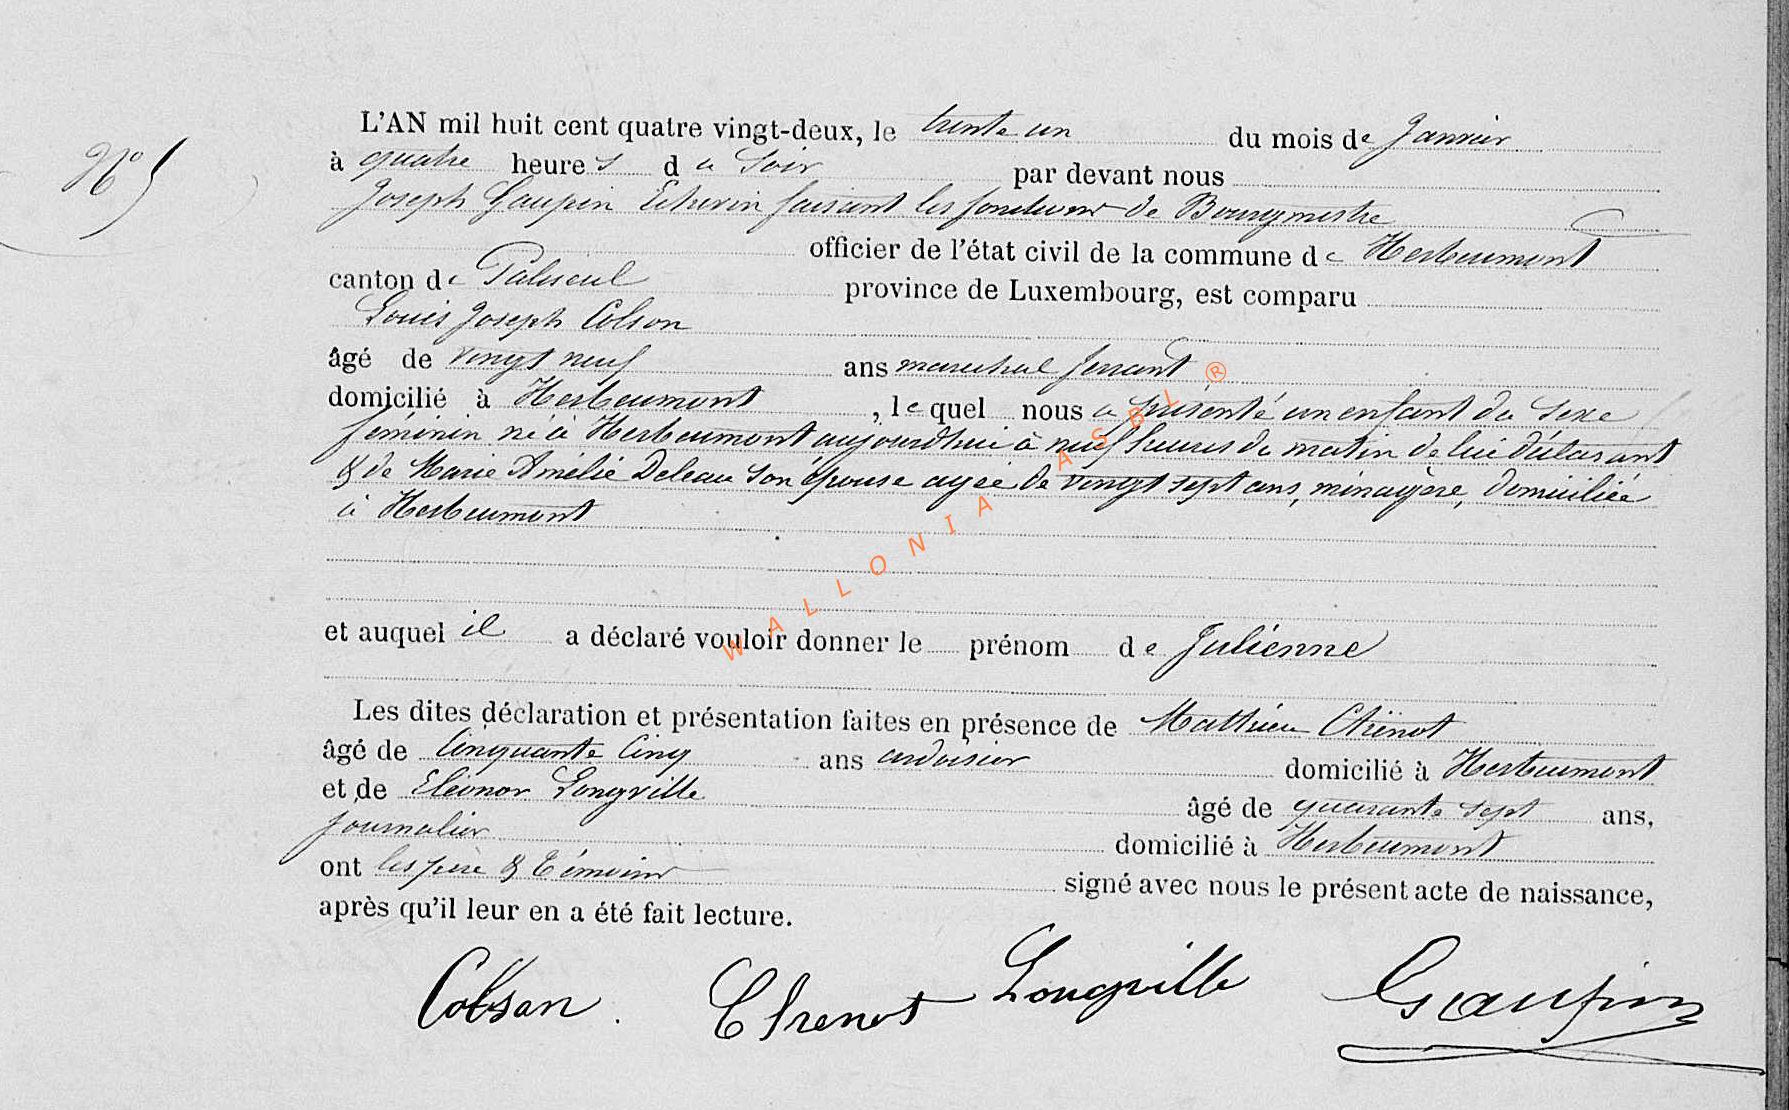 L'AN mil huit cent quatre vingt-deux, le trente un du mois de Janvier
N° 5
à quatre heures du Soir par devant nous
Joseph Gaupin Echevin faisant les fonctions de Bourgmestre
officier de l'état civil de la commune de Herbeumont
canton de Paliseul province de Luxembourg, est comparu
Louis Joseph Colson
âgé de vingt neuf ans marechal ferrant
domicilié à Herbeumont, lequel nous a présenté un enfant du Sexe
féminin né à Herbeumont aujourdhui à neuf heures du matin de lui déclarant
& de Marie Amélie Deleau Son épouse agée de vingt sept ans, ménagère, domiciliée
à Herbeumont
et auquel il a déclaré vouloir donner le prénom de Julienne
Les dites déclaration et présentation faites en présence de Mathieu Chenot
âgé de Cinquante Cinq ans ardoisier domicilié à Herbeumont
et de Eléonor Longville âgé de quarante sept ans,
journalier domicilié à Herbeumont
ont les père & témoins signé avec nous le présent acte de naissance,
après qu'il leur en a été fait lecture.
Colson. Chenot Longville Gaupin
WALLONIA ASBL ®